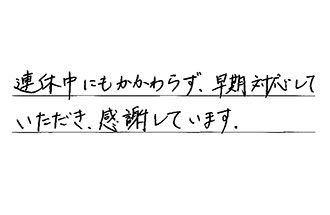 連休中にもかかわらず、早期対応して
いただき、感謝しています.